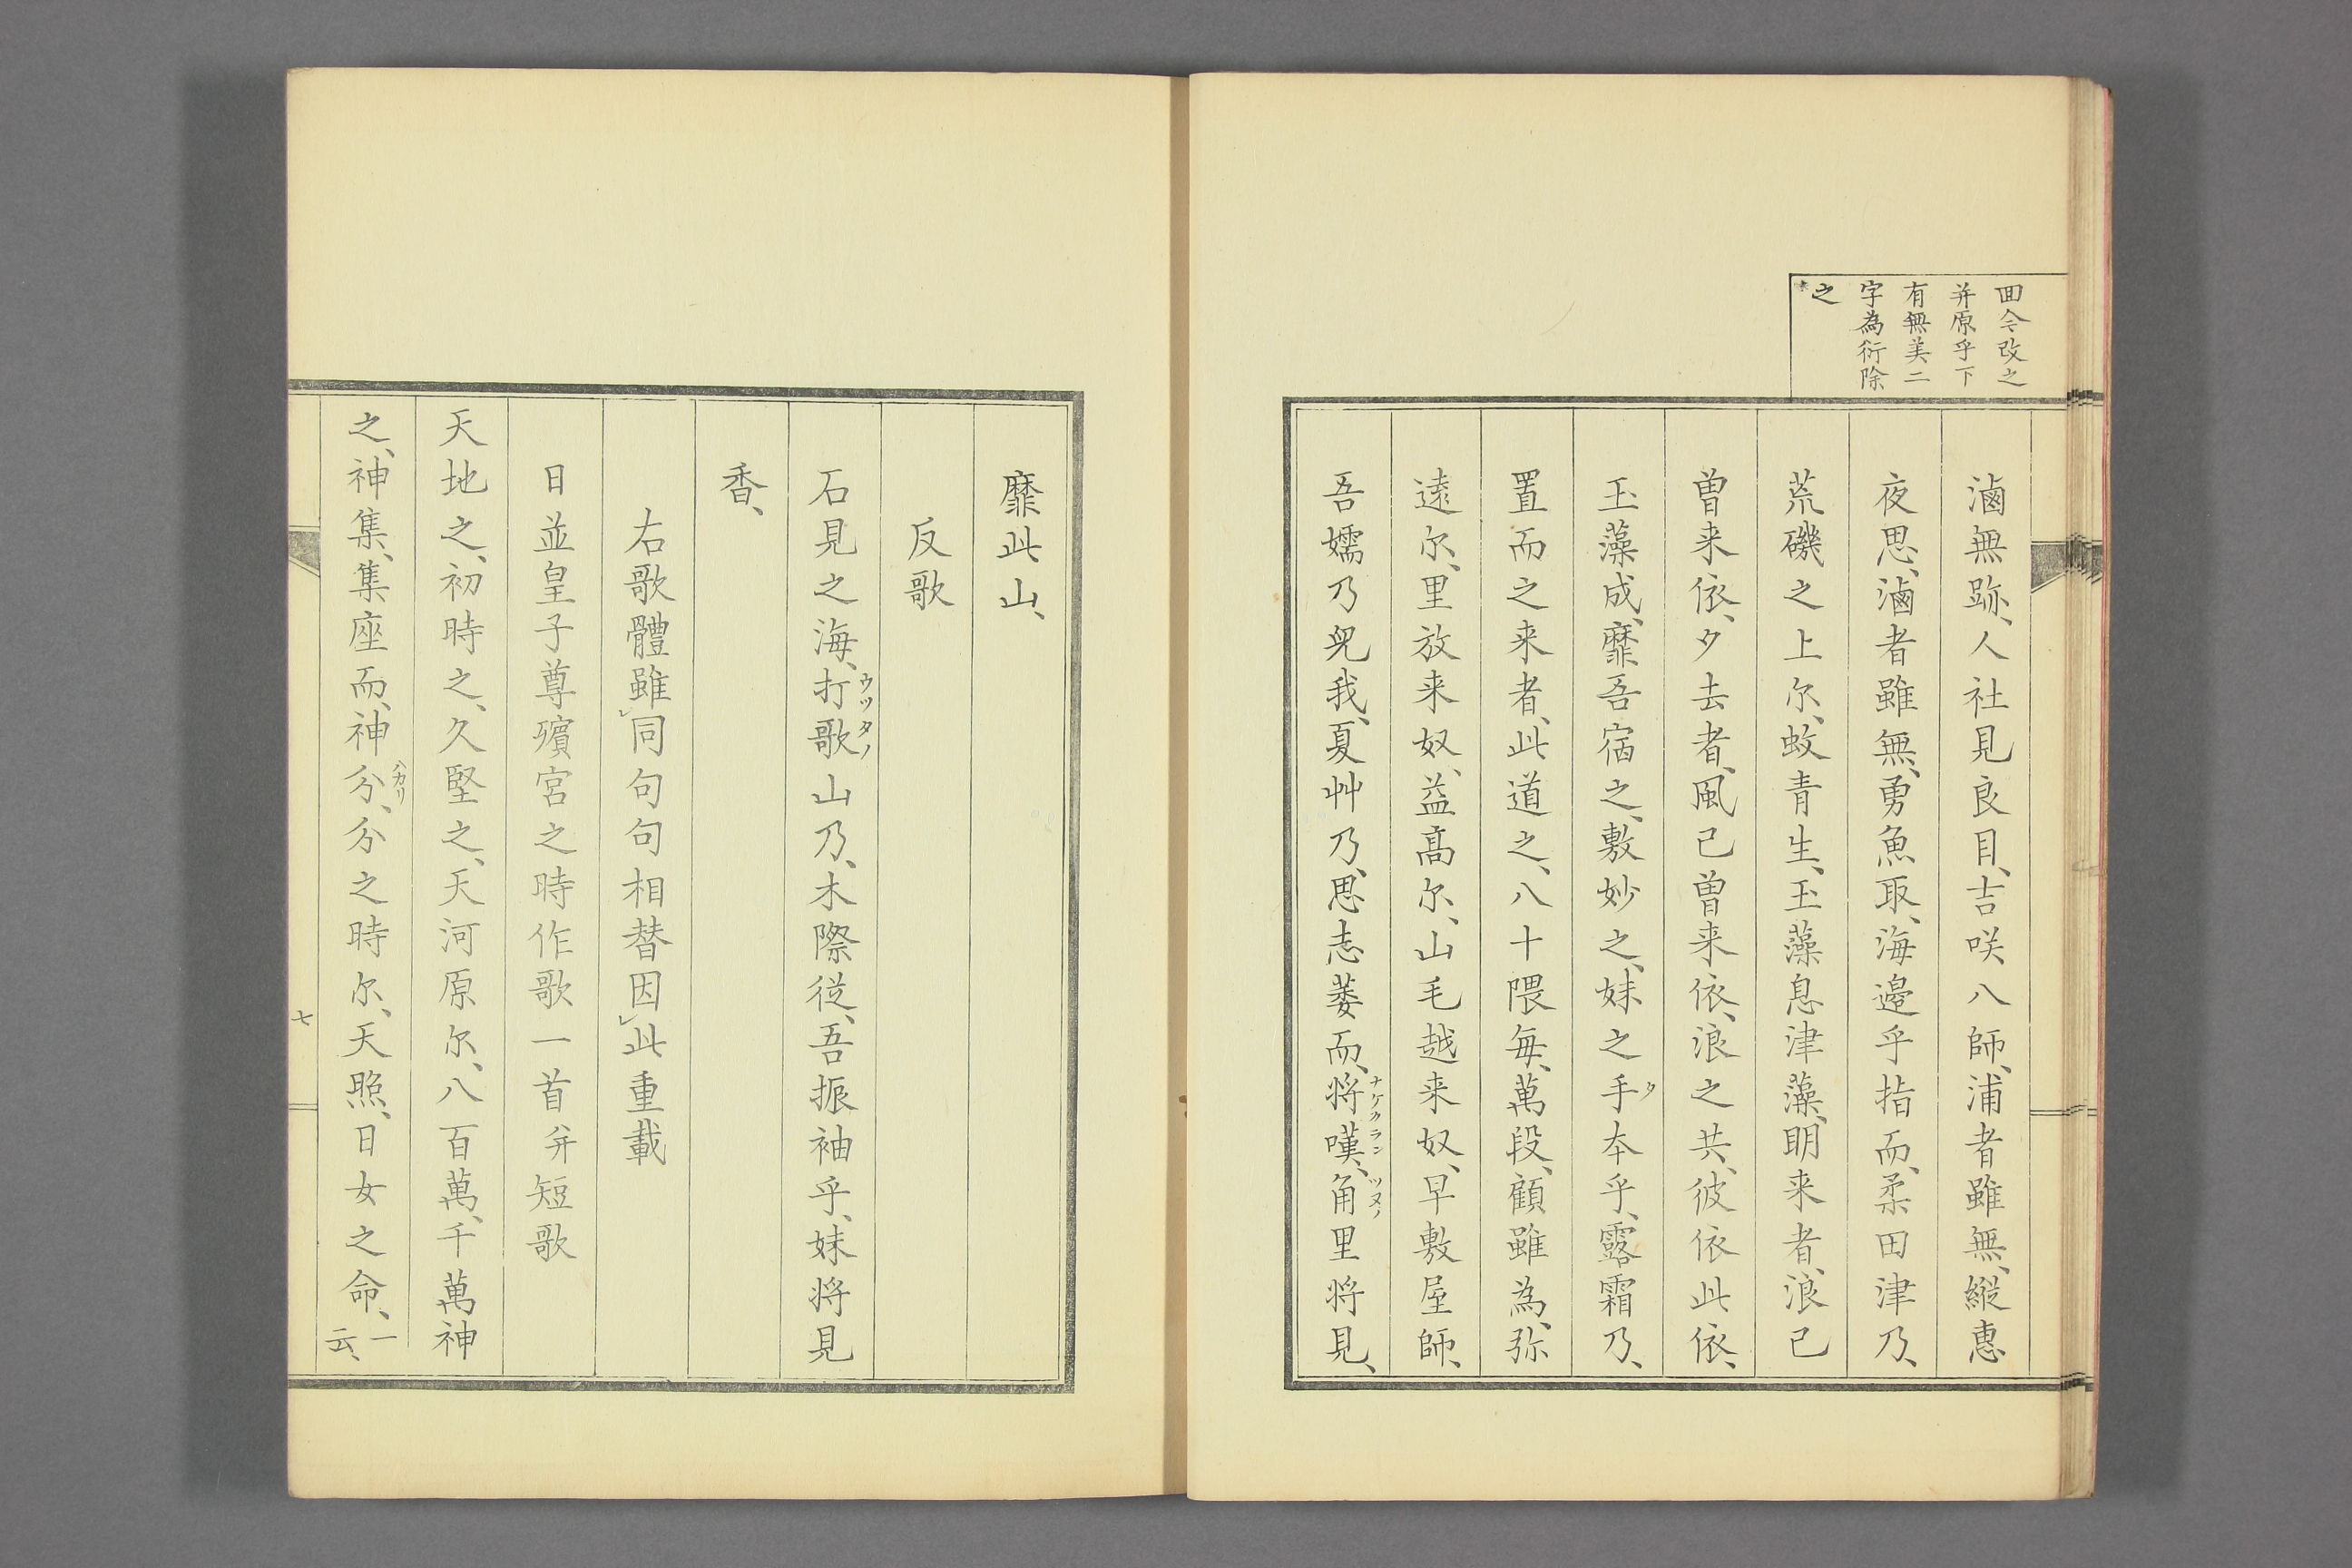 囬今改之
并原乎下
有無美二
字為衍除
之
滷無跡、人社見良目、吉咲八師、浦者雖無、縱惠
夜思、滷者雖無、勇魚取、海邉乎指而、柔田津乃、
荒磯之上尓、蚊青生、玉藻息津藻、明来者、浪己
曽来依、夕去者、風己曽来依、浪之共、彼依此依、
玉藻成、靡吾宿之、敷妙之、妹之手本乎、露霜乃、
タ
置而之来者、此道之、八十隈毎、萬段、顧雖為、弥
遠尓、里放来奴、益高尓、山毛越来奴、早敷屋師、
吾嬬乃兒我、夏艸乃、思志萎而、将嘆、角里将見、
ナケクラン ツヌノ
靡此山、
反歌
石見之海、打歌山乃、木際従、吾振袖乎、妹将見
ウツタノ
香、
右歌體雖同句句相替因此重載
日並皇子尊殯宮之時作歌一首并短歌
天地之、初時之、久堅之、天河原尓、八百萬、千萬神
之、神集、集座而、神分、分之時尓、天照、日女之命、一云、
ハカリ
七